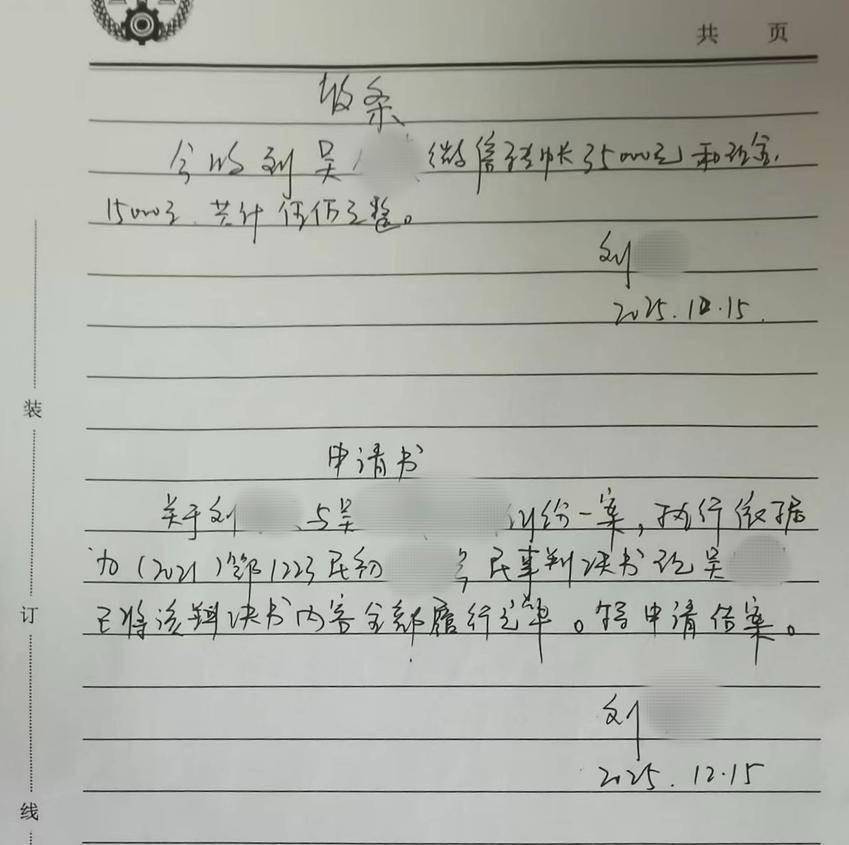 共 页
收条
今收到吴 微信转帐35000元和现金
15000元.共计伍万元整。
刘
2025.12.15.
申请书
关于刘 与吴 纠纷一案,执行依据
为(2021)第1223民初 号民事判决书现吴
已将该判决书内容全部履行完毕。特申请结案。
刘
2025.12.15
装
订
线